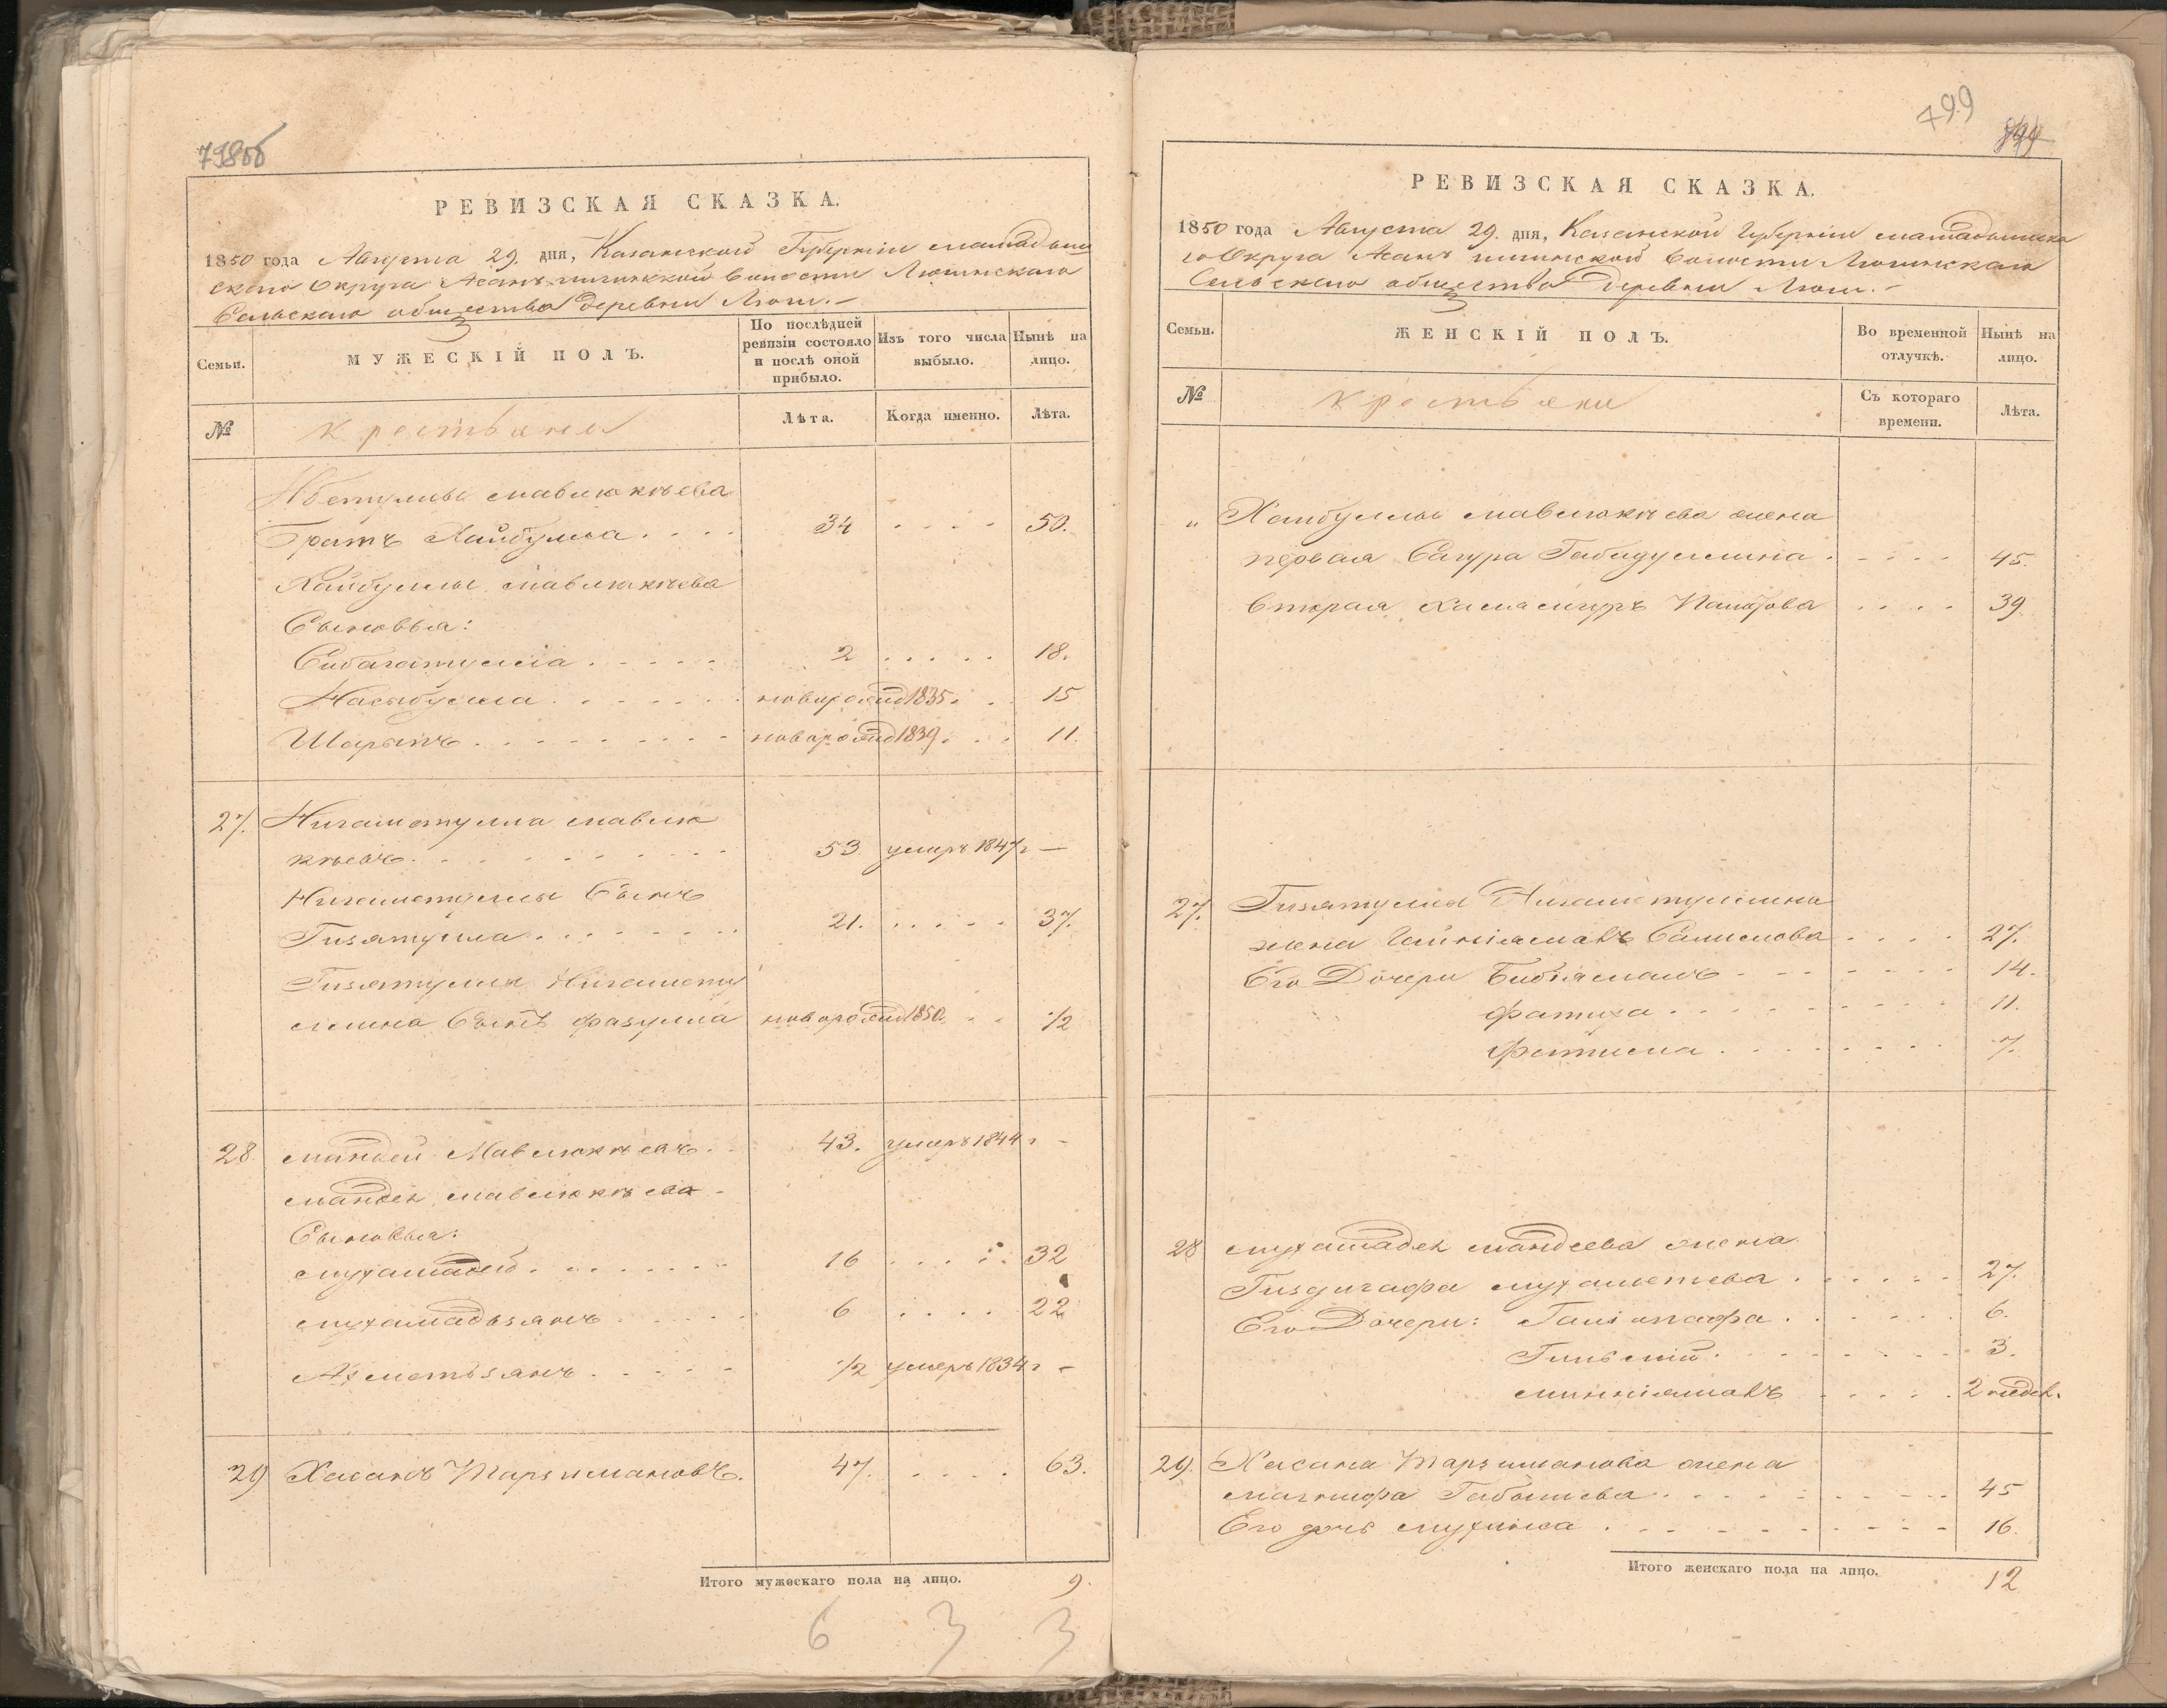 798об
РЕВИЗСКАЯ СКАЗКА.
1850 года Августа 29. дня, Казанской Губерніи Мамадыш
скаго Округа Асанъ волости Люгинскаго
Сельскаго общества Деревни Люги.-
Семьи.
МУЖЕСКІЙ ПОЛЪ.
По послѣдней
ревизіи состояло
и послѣ оной
прибыло.
Изъ того числа
выбыло.
Нынѣ на
лицо.
№
Крестьяне
Лѣта.
Когда именно.
Лѣта.
Мавлюкѣева
Братъ Хайбулла . . . . 34 . . . . 50.
Хайбуллы Мавлюкѣева
Сыновья:
Сибагатулла . . . . . 2 . . . . . 18.
Насыбулла . . . . . . новорожд 1835. . . 15
Шарыпъ . . . . . . . . . новорожд 1839. . . . 11.
27. Нигаматулла Мавлю
кѣевъ . . . . . . . . . 53. умеръ 1847г —
Нигаматуллы Сынъ
Гизятулла . . . . . . . 21. . . . . . 37.
Гизятуллы Нигамету
ллина Сынъ Фазулла новорожд 1850. . . 1/2
28. Мандей Мавлюкѣевъ. . 43. умеръ 1844 г -
Мандея Мавлюкѣева -
Сыновья:
Мухамадей . . . . . . . 16 . . . . . 32
Мухамадьзянъ . . . . . 6 . . . . 22
Ахметьзянъ . . . . . 1/2 умеръ 1834 г -
29 Хасанъ Тарзимановъ. 47. . . . . 63.
Итого мужескаго пола на лицо. 9.
6 3 3
799
РЕВИЗСКАЯ СКАЗКА.
1850 года Августа 29. дня, Казанской Губерніи Мамадышска
го Округа Асанъ волости Люгинскаго
Сельскаго общества Деревни Люги.-
Семьи.
ЖЕНСКІЙ ПОЛЪ.
Во временной
отлучкѣ.
Нынѣ на
лицо.
№
Крестьяне
Съ котораго
времени.
Лѣта.
" Хайбуллы Мавлюкѣева жена
первая Сагура Габидуллина . . . . . 45.
Вторая . . . . 39.
27. Гизятуллы Нигаметуллина
жена Салимова . . . . 27.
Его Дочери Бибіямалъ . . . . . . . 14.
Фатиха . . . . . . . . . 11.
Фатима . . . . . . . . 7.
28 Мухамадея Мандеева жена
Гиздигафа Мухаметева . . . . . . 27.
Его Дочери: . . . . . . 6.
. . . . . . . . 3.
Минніямалъ . . . . . 2 недел.
29. Хасана Тарзиманова жена
Магинфа Габбышева . . . . . . . . . 45
Его дочь . . . . . . . . . . 16.
Итого женскаго пола на лицо. 12